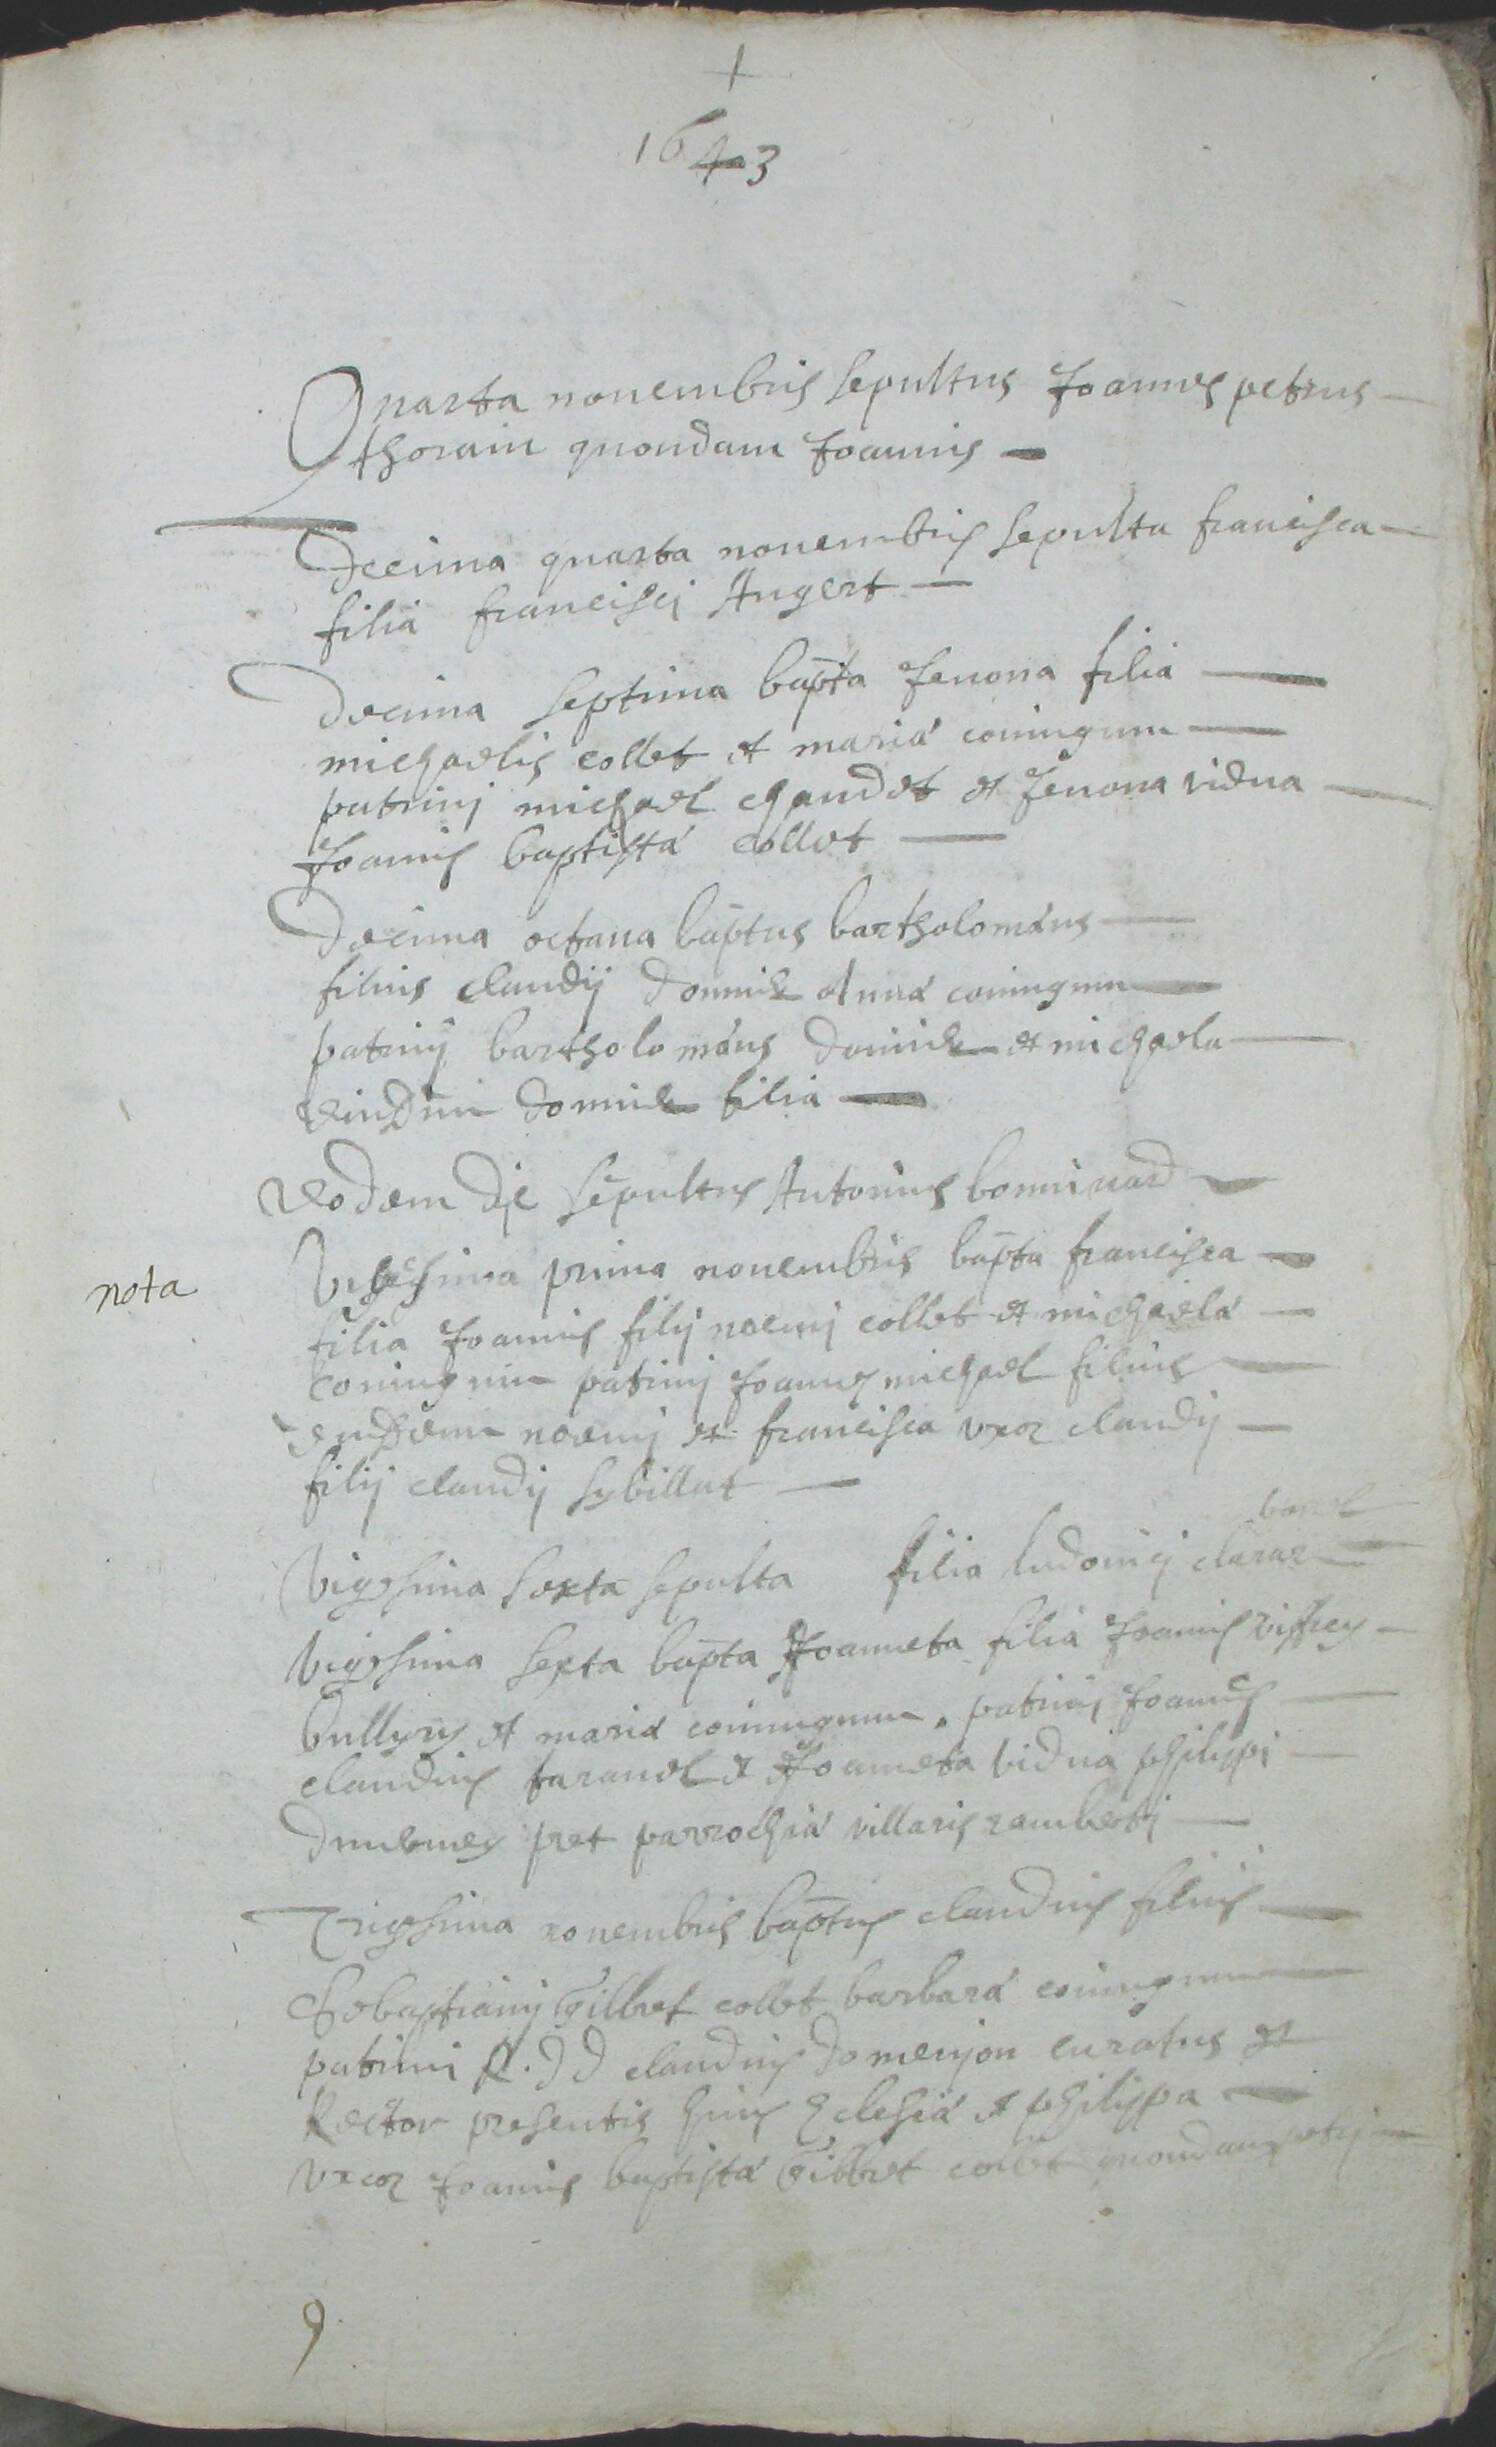 1643
Quarta novembris sepultus Joannes petrus
thorain quondam Joannis
Decima quarta novembris sepulta francisca
filia francisci Augert
Decima septima bapta Jenona filia
michaelis collet et mariæ coniugum
patrini michael chaudet et Jenona vidua
Joannis baptistæ collet
Decima octava baptus bartholomæus
filius claudij Domnich Annæ coniugum
patrinij bartholomæus Domnich et michaela
eiusdem Domnich filia
eodem die sepultus Antonius bonnivard
nota
Vigesima prima novembris bapta francisca
filia Joannis filij noemj collet et michaelæ
coniugum patrinj Joannes michael filius
eiusdem noemj et francisca uxor claudij
filij claudij sybillat
Vigesima sexta sepulta filia ludovicj claraz
Vigesima sexta bapta Joanneta filia Joannis
et mariæ coniugum patrinj Joannes
claudius taravel et Joanneta vidua philippi
parrochiæ villaris rembertj
Trigesima novembris baptus claudius filius
Sebastiani Gilbert collet barbaræ coniugum
patrini R. D D claudius Domenjon curatus et
Rector presentis huius eclesiæ et philippa
uxor Joannis baptistæ Gilbert collet quondam petrj
9